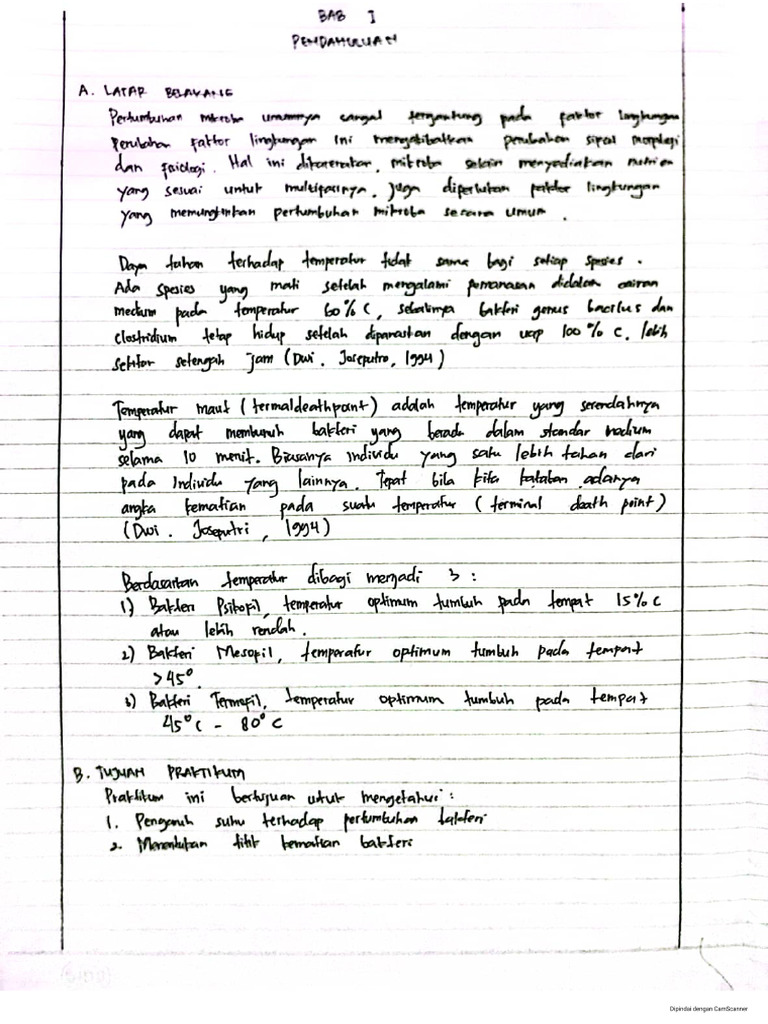 BAB I
PENDAHULUAN
A. LATAR BELAKANG
Pertumbuhan mikroba umumnya sangat tergantung pada faktor lingkungan
Perubahan faktor lingkungan ini mengakibatkan perubahan sifat morfologi
dan fisiologi. Hal ini dikarenakan, mikroba selain menyediakan nutrien
yang sesuai untuk multipasinya. juga diperlukan faktor lingkungan
yang memungkinkan pertumbuhan mikroba secara umum.
Daya tahan terhadap temperatur tidak sama bagi setiap spesies.
Ada spesies yang mati setelah mengalami pemanasan didalam cairan
medium pada temperatur 60% C, sebaliknya bakteri genus bacilus dan
clostridium tetap hidup setelah dipanaskan dengan uap 100% C. lebih
sekitar setengah jam (Dwi. Joseputro, 1994)
Temperatur maut (termaldeathpoint) adalah temperatur yang serendahnya
yang dapat membunuh bakteri yang berada dalam standar medium
selama 10 menit. Biasanya individu yang satu lebih tahan dari
pada Individu yang lainnya. Tepat bila kita katakan adanya
angka kematian pada suatu temperatur (terminal death point)
(Dwi. Joseputri, 1994)
Berdasarkan temperatur dibagi menjadi 3 :
1) Bakteri Psikofil, temperatur optimum tumbuh pada tempat 15% C
atau lebih rendah.
2) Bakteri Mesofil, temperatur optimum tumbuh pada tempat
>45°.
3) Bakteri Termofil, temperatur optimum tumbuh pada tempat
45°C - 80°C
B. TUJUAN PRAKTIKUM
Praktikum ini bertujuan untuk mengetahui :
1. Pengaruh suhu terhadap pertumbuhan bakteri
2. Menentukan titik kematian bakteri
Dipindai dengan CamScanner